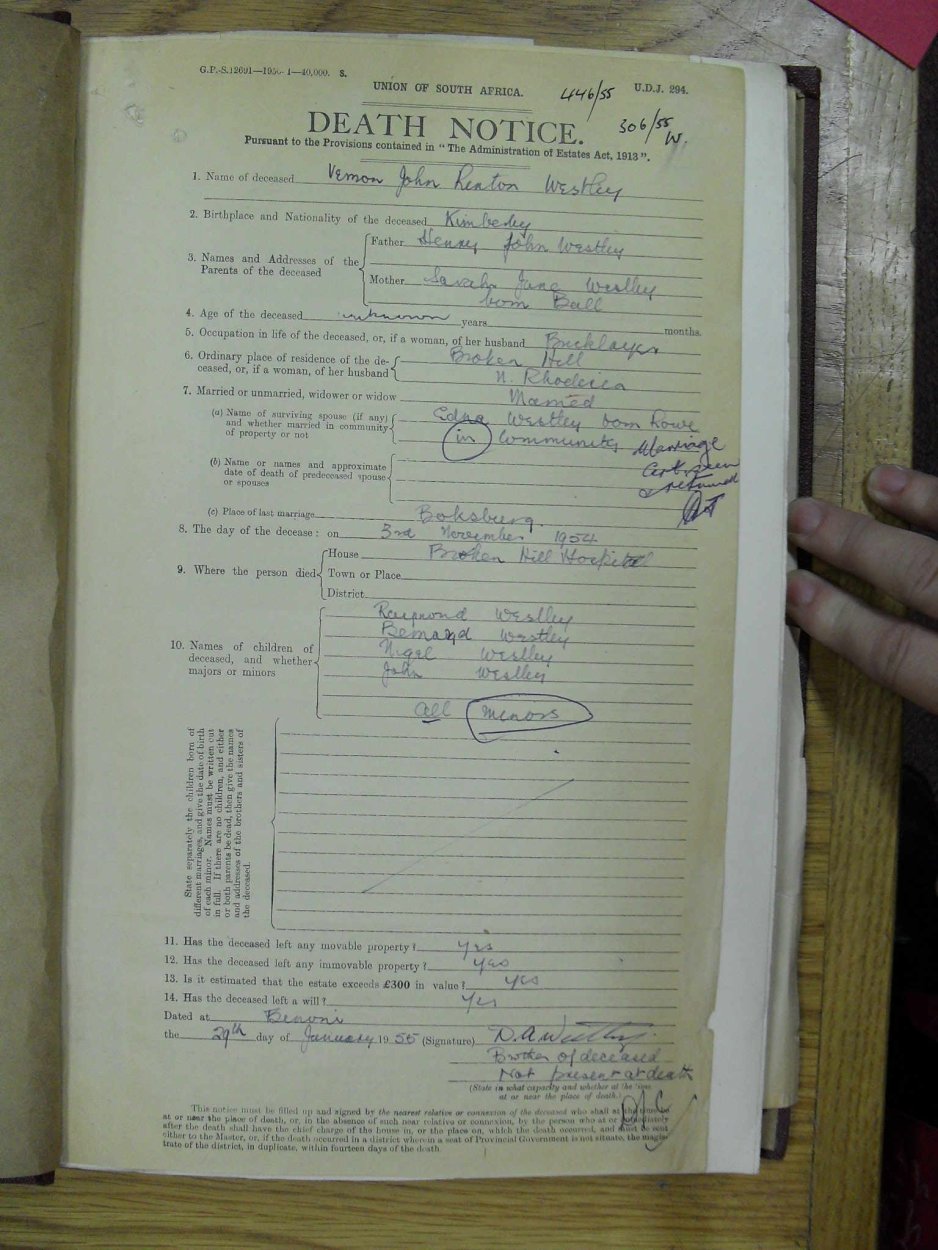 G.P.-S.12691—1950-1—40,000. S.
UNION OF SOUTH AFRICA.
446/55
U.D.J. 294.
DEATH NOTICE.
306/55
W.
Pursuant to the Provisions contained in " The Administration of Estates Act, 1913 ".
1. Name of deceased Vernon John Renton Westley
2. Birthplace and Nationality of the deceased Kimberley
3. Names and Addresses of the Parents of the deceased
Father Henry John Westley
Mother Sarah Jane Westley
born Ball
4. Age of the deceased unknown years months.
5. Occupation in life of the deceased, or, if a woman, of her husband Bricklayer
6. Ordinary place of residence of the de-
ceased, or, if a woman, of her husband
Broken Hill
N. Rhodesia
7. Married or unmarried, widower or widow Married
(a) Name of surviving spouse (if any)
and whether married in community
of property or not
Edna Westley born Lowe
in Community
Marriage
Cert seen
& returned
(b) Name or names and approximate
date of death of predeceased spouse
or spouses
(c) Place of last marriage Boksburg.
8. The day of the decease : on 3rd November 1954
9. Where the person died
House Broken Hill Hospital
Town or Place
District
10. Names of children of
deceased, and whether
majors or minors
Raymond Westley
Bernard Westley
Nigel Westley
John Westley
All minors
State separately the children born of
different marriages, and give the date of birth
of each minor. Names must be written out
in full. If there are no children, and either
or both parents be dead, then give the names
and addresses of the brothers and sisters of
the deceased.
11. Has the deceased left any movable property ? Yes
12. Has the deceased left any immovable property ? Yes
13. Is it estimated that the estate exceeds £300 in value ? Yes
14. Has the deceased left a will ? Yes
Dated at Benoni
the 29th day of January 1955 (Signature) D.A. Westley
Brother of deceased
Not present at death
(State in what capacity and whether at the time
at or near the place of death.)
This notice must be filled up and signed by the nearest relative or connexion of the deceased who shall at the time be
at or near the place of death, or, in the absence of such near relative or connexion, by the person who at or immediately
after the death shall have the chief charge of the house in, or the place on, which the death occurred, and must be sent
either to the Master, or, if the death occurred in a district wherein a seat of Provincial Government is not situate, the magis-
trate of the district, in duplicate, within fourteen days of the death.